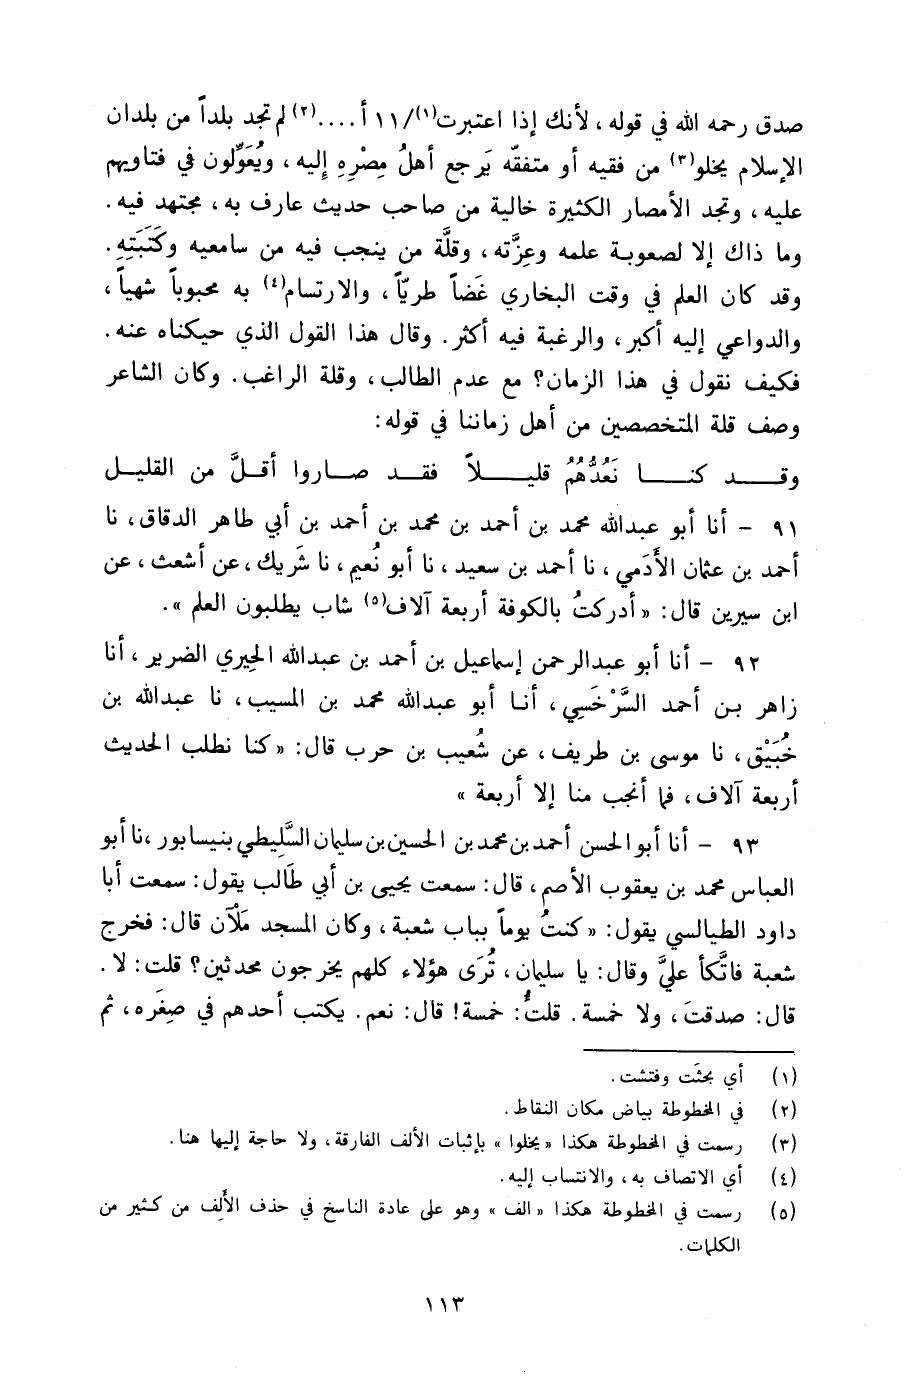 صدق رحمه الله في قوله، لأنك إذا اعتبرت(١)/١١ أ....(٢) لم تجد بلداً من بلدان
الإسلام يخلو(٣) من فقيه أو متفقّه يَرجع أهلُ مِصْرِهِ إليه، ويُعَوِّلون في فتاويهم
عليه، وتجد الأمصار الكثيرة خالية من صاحب حديث عارف به، مجتهد فيه.
وما ذاك إلا لصعوبة علمه وعِزَّته، وقلَّة من ينجب فيه من سامعيه وكَتَبَتِهِ.
وقد كان العلم في وقت البخاري غَضاً طريّاً، والارتسام(٤) به محبوباً شهياً،
والدواعي إليه أكبر، والرغبة فيه أكثر. وقال هذا القول الذي حيكناه عنه.
فكيف نقول في هذا الزمان؟ مع عدم الطالب، وقلة الراغب. وكان الشاعر
وصف قلة المتخصصين من أهل زماننا في قوله:
وقــد كنــا نَعُدُّهُمُ قليــلاً فقــد صــاروا أقلَّ من القليــل
٩١ - أنا أبو عبدالله محمد بن أحمد بن محمد بن أحمد بن أبي طاهر الدقاق، نا
أحمد بن عثمان الأَدَمي، نا أحمد بن سعيد، نا أبو نُعيم، نا شَريك، عن أشعث، عن
ابن سيرين قال: « أدركتُ بالكوفة أربعة آلاف(٥) شاب يطلبون العلم ».
٩٢ - أنا أبو عبدالرحمن إسماعيل بن أحمد بن عبدالله الحِيري الضرير، أنا
زاهر بن أحمد السَّرْخَسِي، أنا أبو عبدالله محمد بن المسيب، نا عبدالله بن
خُبَيْق، نا موسى بن طريف، عن شُعيب بن حرب قال: « كنا نطلب الحديث
أربعة آلاف، فما أنجب منا إلا أربعة »
٩٣ - أنا أبو الحسن أحمد بن محمد بن الحسين بن سليمان السَّلِيطي بنيسابور، نا أبو
العباس محمد بن يعقوب الأصم، قال: سمعت يحيى بن أبي طَالب يقول: سمعت أبا
داود الطيالسي يقول: « كنتُ يوماً بباب شعبة، وكان المسجد مَلْآن قال: فخرج
شعبة فاتَّكأ عليَّ وقال: يا سليمان، تُرَى هؤلاء كلهم يخرجون محدثين؟ قلت: لا.
قال: صدقتَ، ولا خمسة. قلتُ: خمسة! قال: نعم. يكتب أحدهم في صِغَره، ثم
(١) أي بحثَت وفتشت.
(٢) في المخطوطة بياض مكان النقاط.
(٣) رسمت في المخطوطة هكذا « يخلوا » بإثبات الألف الفارقة، ولا حاجة إليها هنا.
(٤) أي الاتصاف به، والانتساب إليه.
(٥) رسمت في المخطوطة هكذا « الف » وهو على عادة الناسخ في حذف الأَلِف من كثير من
الكلمات.
١١٣